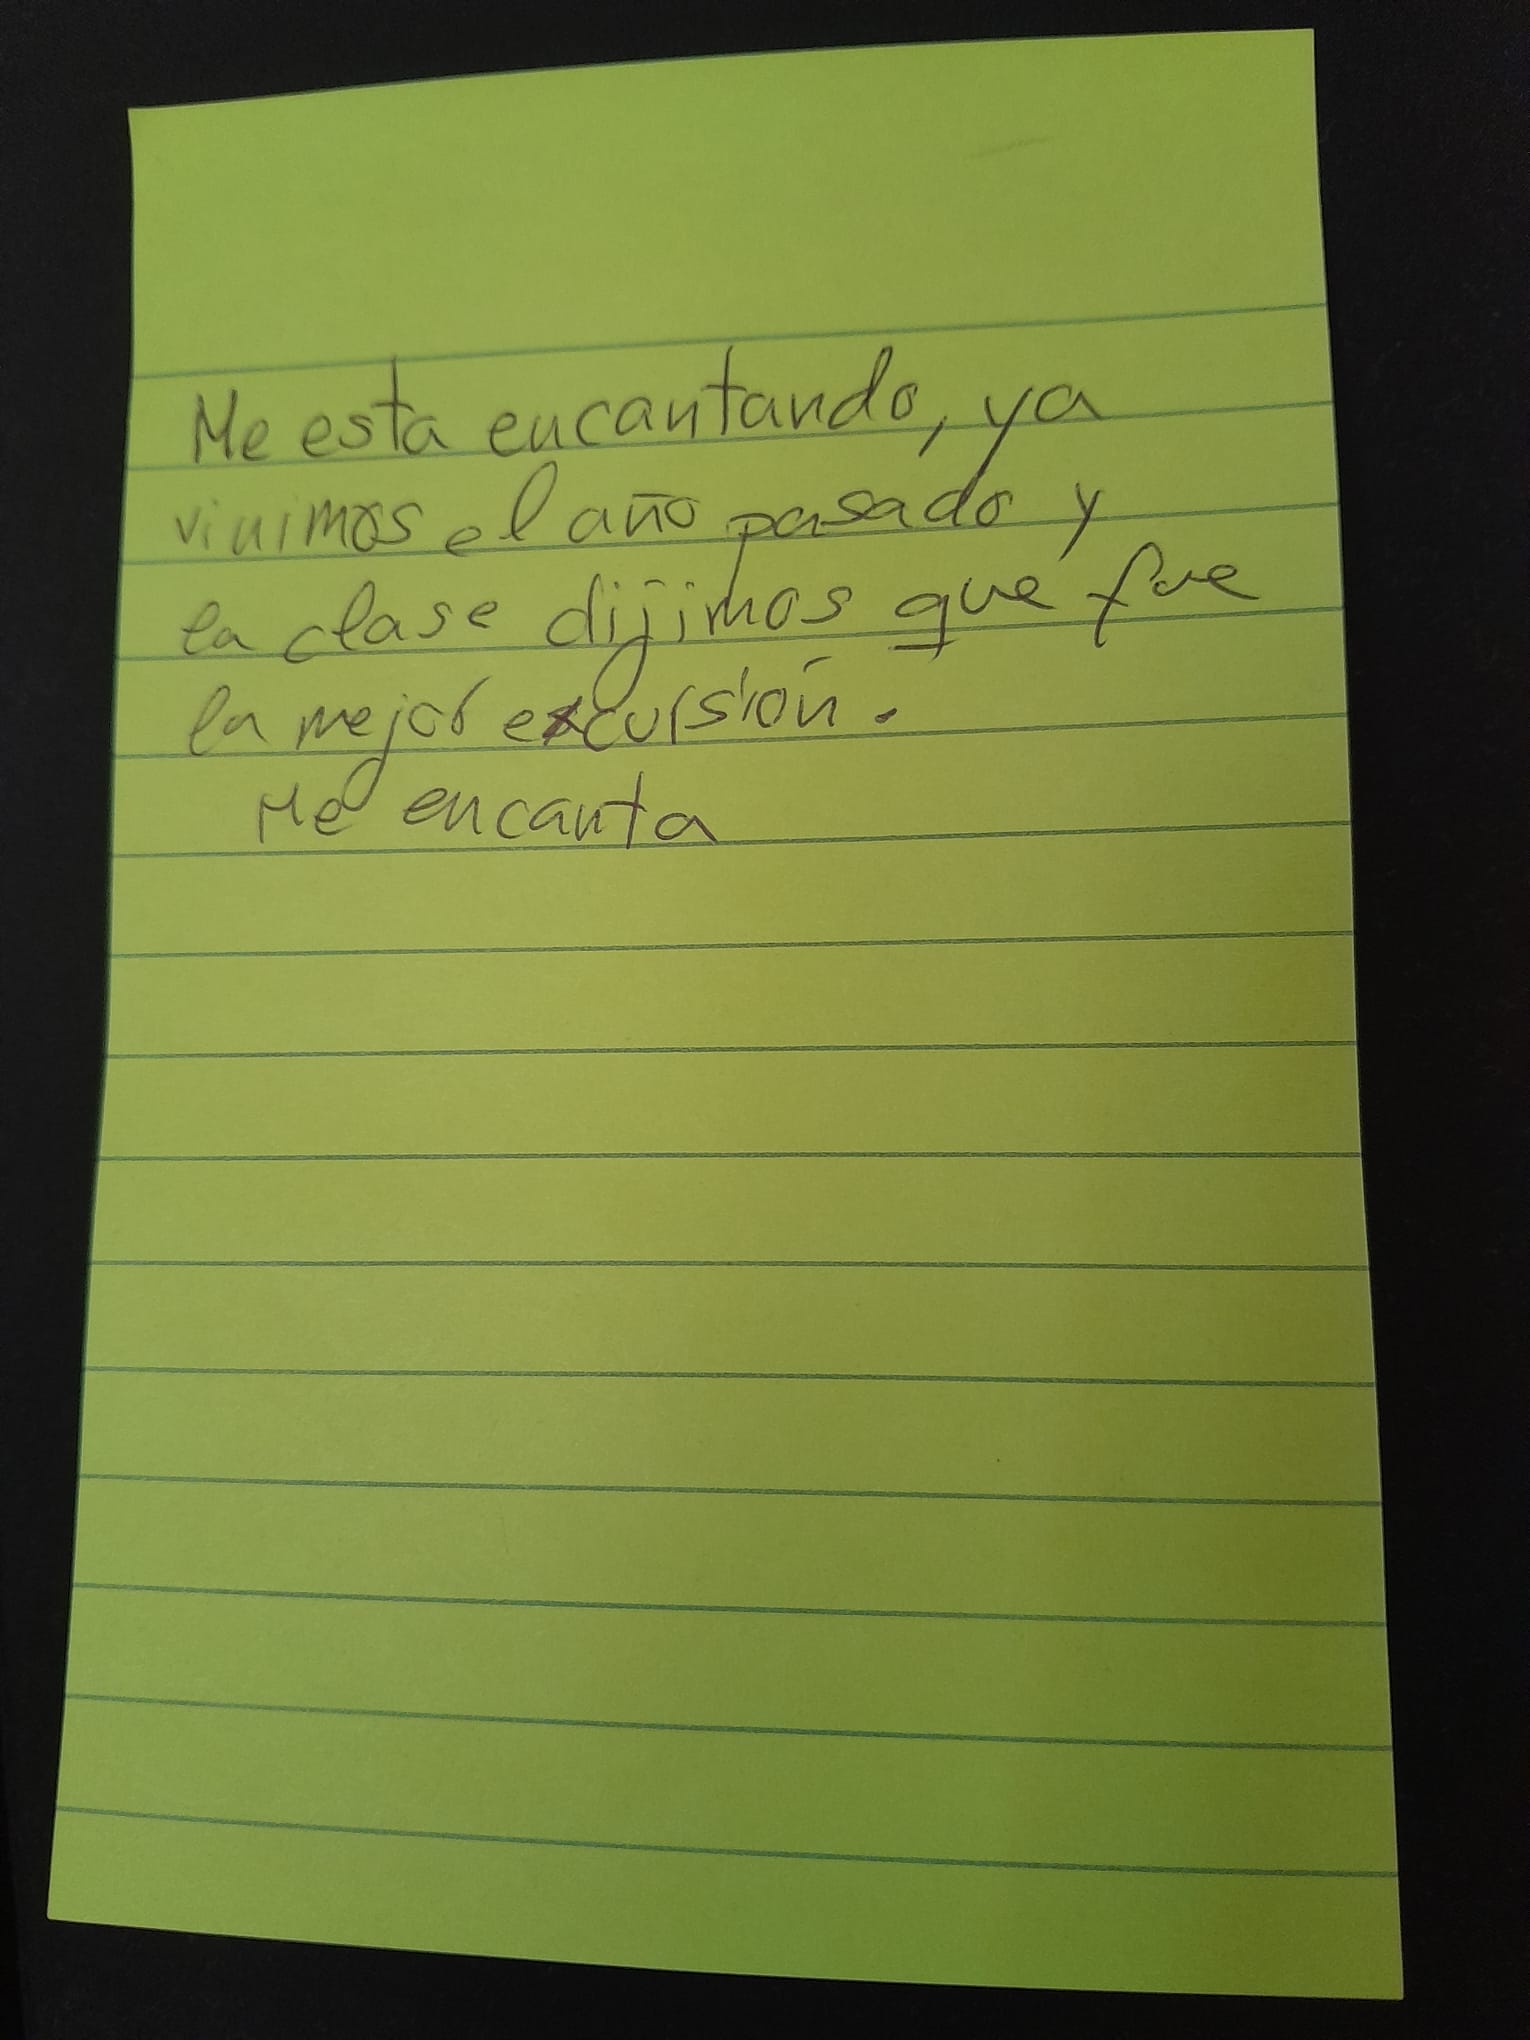 Me esta encantando, ya
vinimos el año pasado y
la clase dijimos que fue
la mejor excursión.
Me encanta